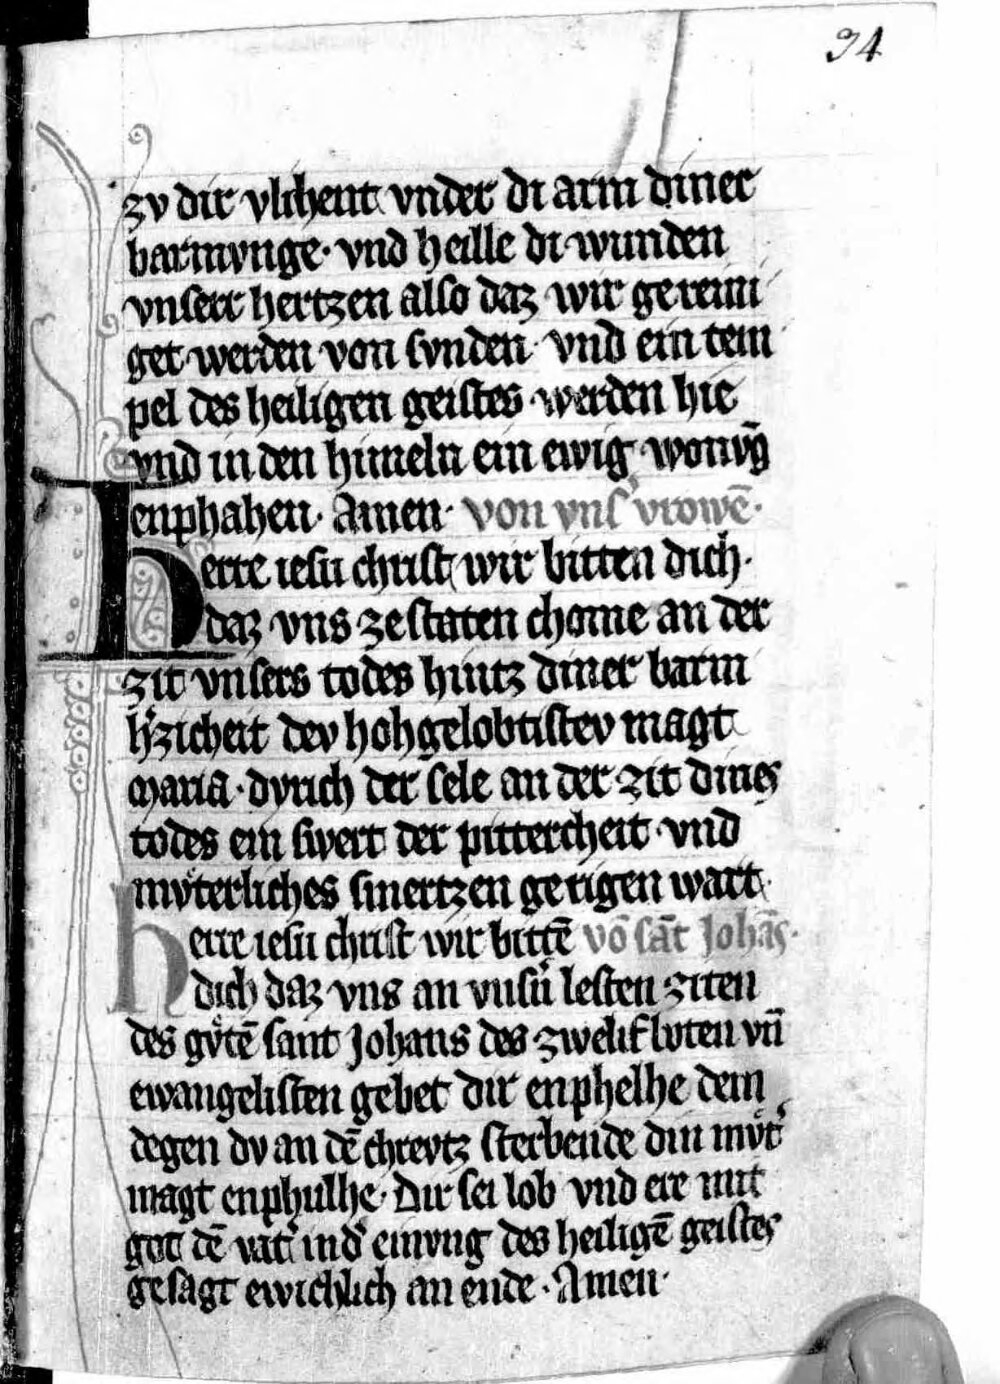 34
zv dir vlihent vnder di arm diner
barmvnge · vnd heille di wunden
vnserr hertzen also daz wir gereini
get werden von svnden · vnd ein tem
pel des heiligen geistes werden hie
vnd in den himeln ein ewig wonvg̅
enphahen · Amen · von vns͛ vrowē ·
Herre iesu christ wir bitten dich ·
daz vns ze staten chome an der
zit vnsers todes hintz diner barm
h͛zicheit dev hohgelobtistev magt
Maria · dvrich der sele an der zit dines
todes ein swert der pittercheit vnd
mvͦterliches smertzen gerigen wart ·
herre iesu christ wir bittē vō sāt Johās ·
dich daz vns an vnsn͛ lesten ziten
des gvͦtē sant Johans des zwelifboten vn̄
ewangelisten gebet dir enphelhe dem
degen dv an dē chrevtz sterbende din mvͦt͛
magt enphulhe · Dir sei lob vnd ere mit
got dē vat͛ in d͛ einvng des heiligē geistes
gesagt ewichlich an ende · Amen ·